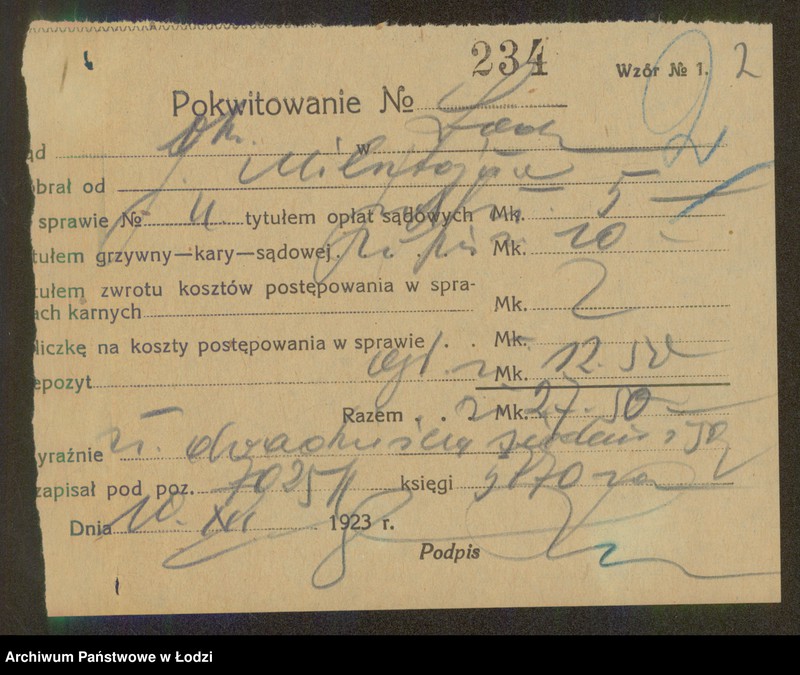 234
Wzór № 1. 2
Pokwitowanie №
ąd Okr. w Łodzi
obrał od
sprawie № 11 tytułem opłat sądowych Mk. 5
tułem grzywny—kary—sądowej . . . Mk. 10
tułem zwrotu kosztów postępowania w spra-
ach karnych Mk. 2
liczkę na koszty postępowania w sprawie . . Mk.
epozyt ogł. zł. Mk. 12.50
Razem . . zł Mk. 27.50
yraźnie zł. dwadzieścia siedem i 50
zapisał pod poz. 7025/ księgi
Dnia 10. XII 1923 r.
Podpis
Archiwum Państwowe w Łodzi